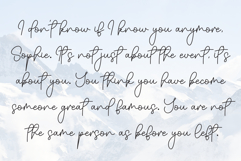 I don't know if I know you anymore.
Sophie. It's not just about the event, it's
about you. You think you have become
someone great and famous. You are not
the same person as before you left.